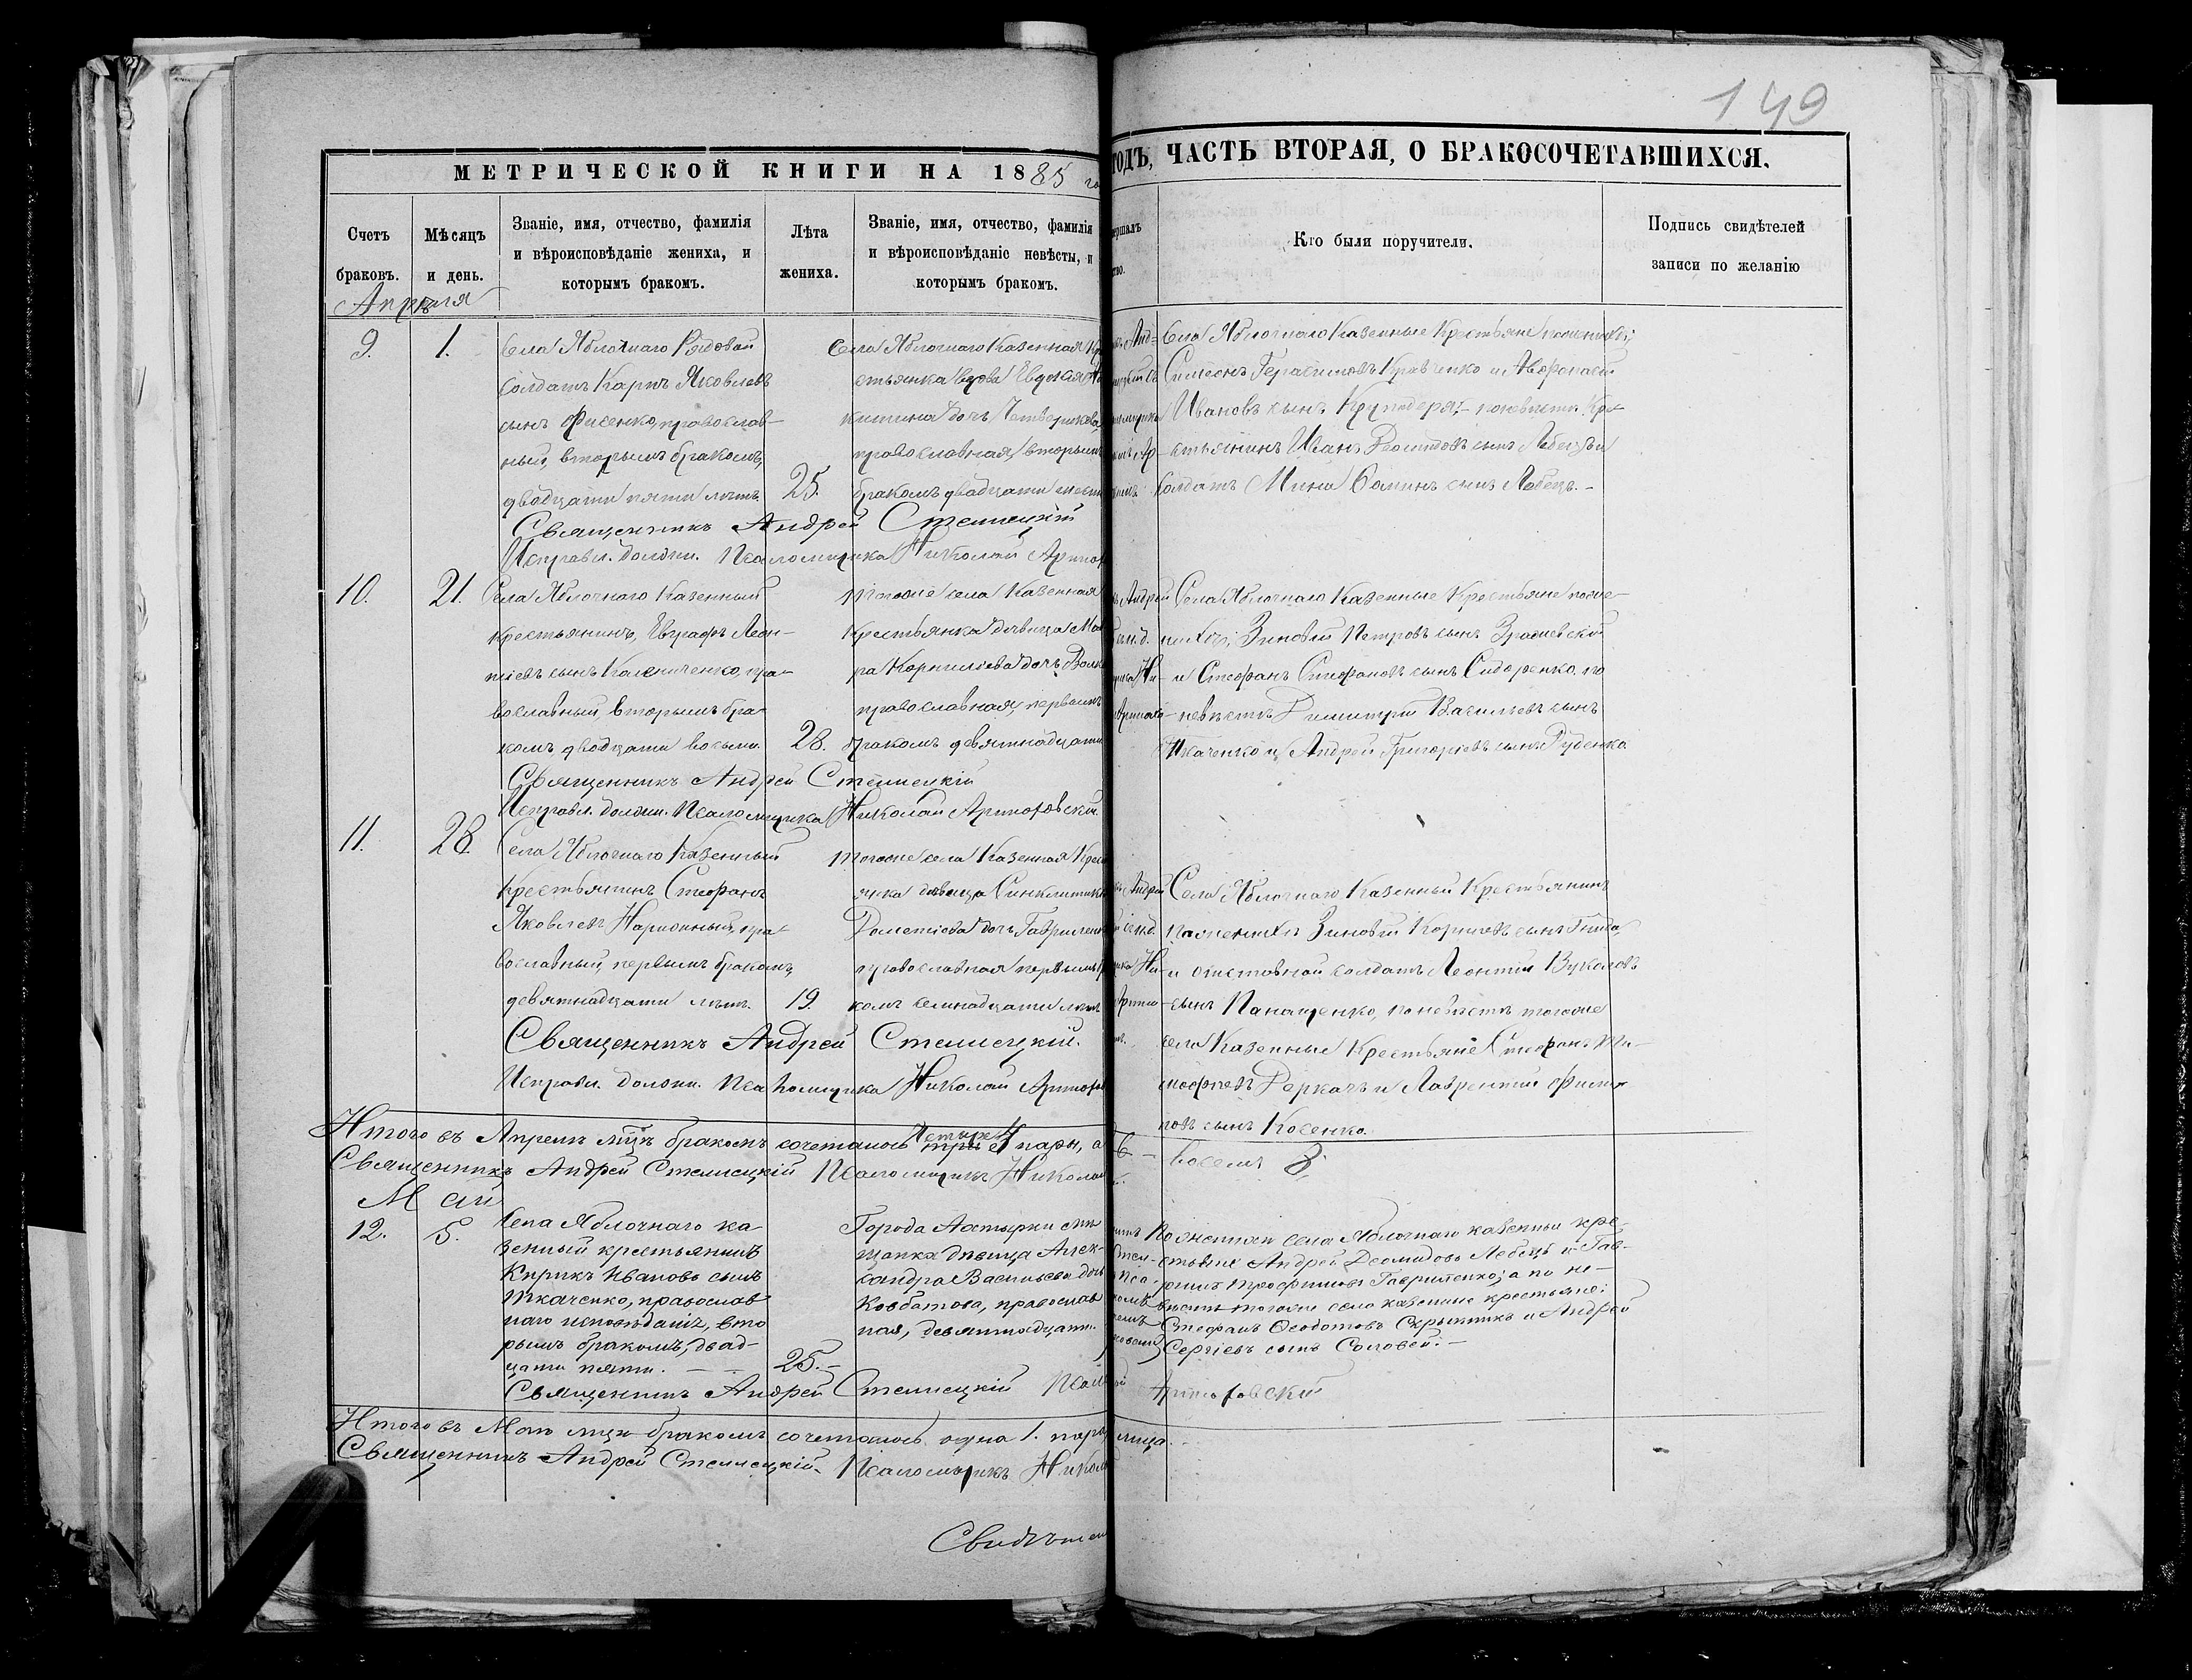 149
МЕТРИЧЕСКОЙ КНИГИ НА 1885 го
ГОДЪ, ЧАСТЬ ВТОРАЯ, О БРАКОСОЧЕТАВШИХСЯ.
Счетъ
браковъ.
Мѣсяцъ
и день.
Званіе, имя, отчество, фамилія
и вѣроисповѣданіе жениха, и
которымъ бракомъ.
Лѣта
жениха.
Званіе, имя, отчество, фамилія
и вѣроисповѣданіе невѣсты, и
которымъ бракомъ.
Кто были поручители.
Подпись свидѣтелей
записи по желанію
Апрѣля
9.
1.
Села Яблочнаго Рядовой
солдатъ Карпъ Яковлевъ
сынъ Фисенко, православ-
ный, вторымъ бракомъ,
двадцати пяти лѣтъ.
25.
Села Яблочнаго Казенная Кре
стьянка вдова Евдокія
китина дочь Четверикова,
православная, вторымъ
бракомъ двадцати шести
Села Яблочнаго Казенные Крестьяне по женихѣ;
Симеонъ Герасимовъ Кравченко и Аѳанасій
Ивановъ сынъ по невѣстѣ Кре-
стьянинъ Иванъ Деомидовъ сынъ Лебедь и
солдатъ Мина Саминъ сынъ Лебедь.-
Священникъ Андрей Стеллецкій
Исправл. должн. Псаломщика Николай Артюховскій
10.
21.
Села Яблочнаго Казенный
крестьянинъ, Евграфъ Леон-
тіевъ сынъ Калениченко, пра-
вославный, вторымъ бра-
комъ двадцати восьми.
28.
Тогоже села Казенная
крестьянка дѣвица Мав
ра Корниліева дочь
православная, первымъ
бракомъ девятнадцати
Села Яблочнаго Казенные Крестьяне по же-
нихѣ; Зиновій Петровъ сынъ
и Стефанъ Стефановъ сынъ Сидоренко, по
невѣстѣ Димитрій Васильевъ сынъ
Ткаченко и Андрей Григорьевъ сынъ Руденко
Священникъ Андрей Стеллецкій
Исправл. должн. Псаломщика Николай Артюховскій.
11.
28.
Села Яблочнаго Казенный
Крестьянинъ Стефанъ
Яковлевъ Нарижный, пра-
вославный, первымъ бракомъ,
девятнадцати лѣтъ.
19.
Тогоже села Казенная Крест
янка дѣвица Синклитик
Дометіева дочь Гавриленк
православная первымъ бра
комъ семнадцати лѣтъ
Села Яблочнаго Казенный Крестьянинъ
по женихѣ Зиновій Корниевъ сынъ
и отставной солдатъ Леонтій Вуколовъ
сынъ Панащенко, по невѣстѣ тогоже
села Казенные Крестьяне Стефанъ Ти-
моѳеевъ Деркачъ и Лаврентій Филип
повъ сынъ Косенко.
Священникъ Андрей Стеллецкій.
Исправл. должн. Псаломщика Николай Артюхов
Итого въ Апрелѣ мцѣ бракомъ сочеталось четыре 4 пары, а
восемь 8.
Священникъ Андрей Стеллецкій Псаломщикъ Николай
Май
12.
5.
Села Яблочнаго ка-
зенный крестьянинъ
Кирикъ Ивановъ сынъ
Ткаченко, православ
наго исповѣданія, вто
рымъ бракомъ, двад-
цати пяти. — —
25.-
Города Ахтырки мѣ
щанка дѣвица Алек-
сандра Васильева дочь
Колбатова, православ
ная, девятнадцати.
По женихѣ села Яблочнаго казенные кре-
стьяне Андрей Деомидовъ Лебедь и Гав-
риилъ Трофимовъ Гавриленко; а по не-
вѣстѣ тогоже села казенные крестьяне:
Стефанъ Ѳеодотовъ Скрынникъ и Андрей
Сергіевъ сынъ Соловей.-
Священникъ Андрей Стеллецкій Псал
Артюховскій
Итого въ Маѣ мцѣ бракомъ сочеталось одна 1. пара
лица.-
Священникъ Андрей Стеллецкій. Псаломщикъ Никол
Свидѣтел